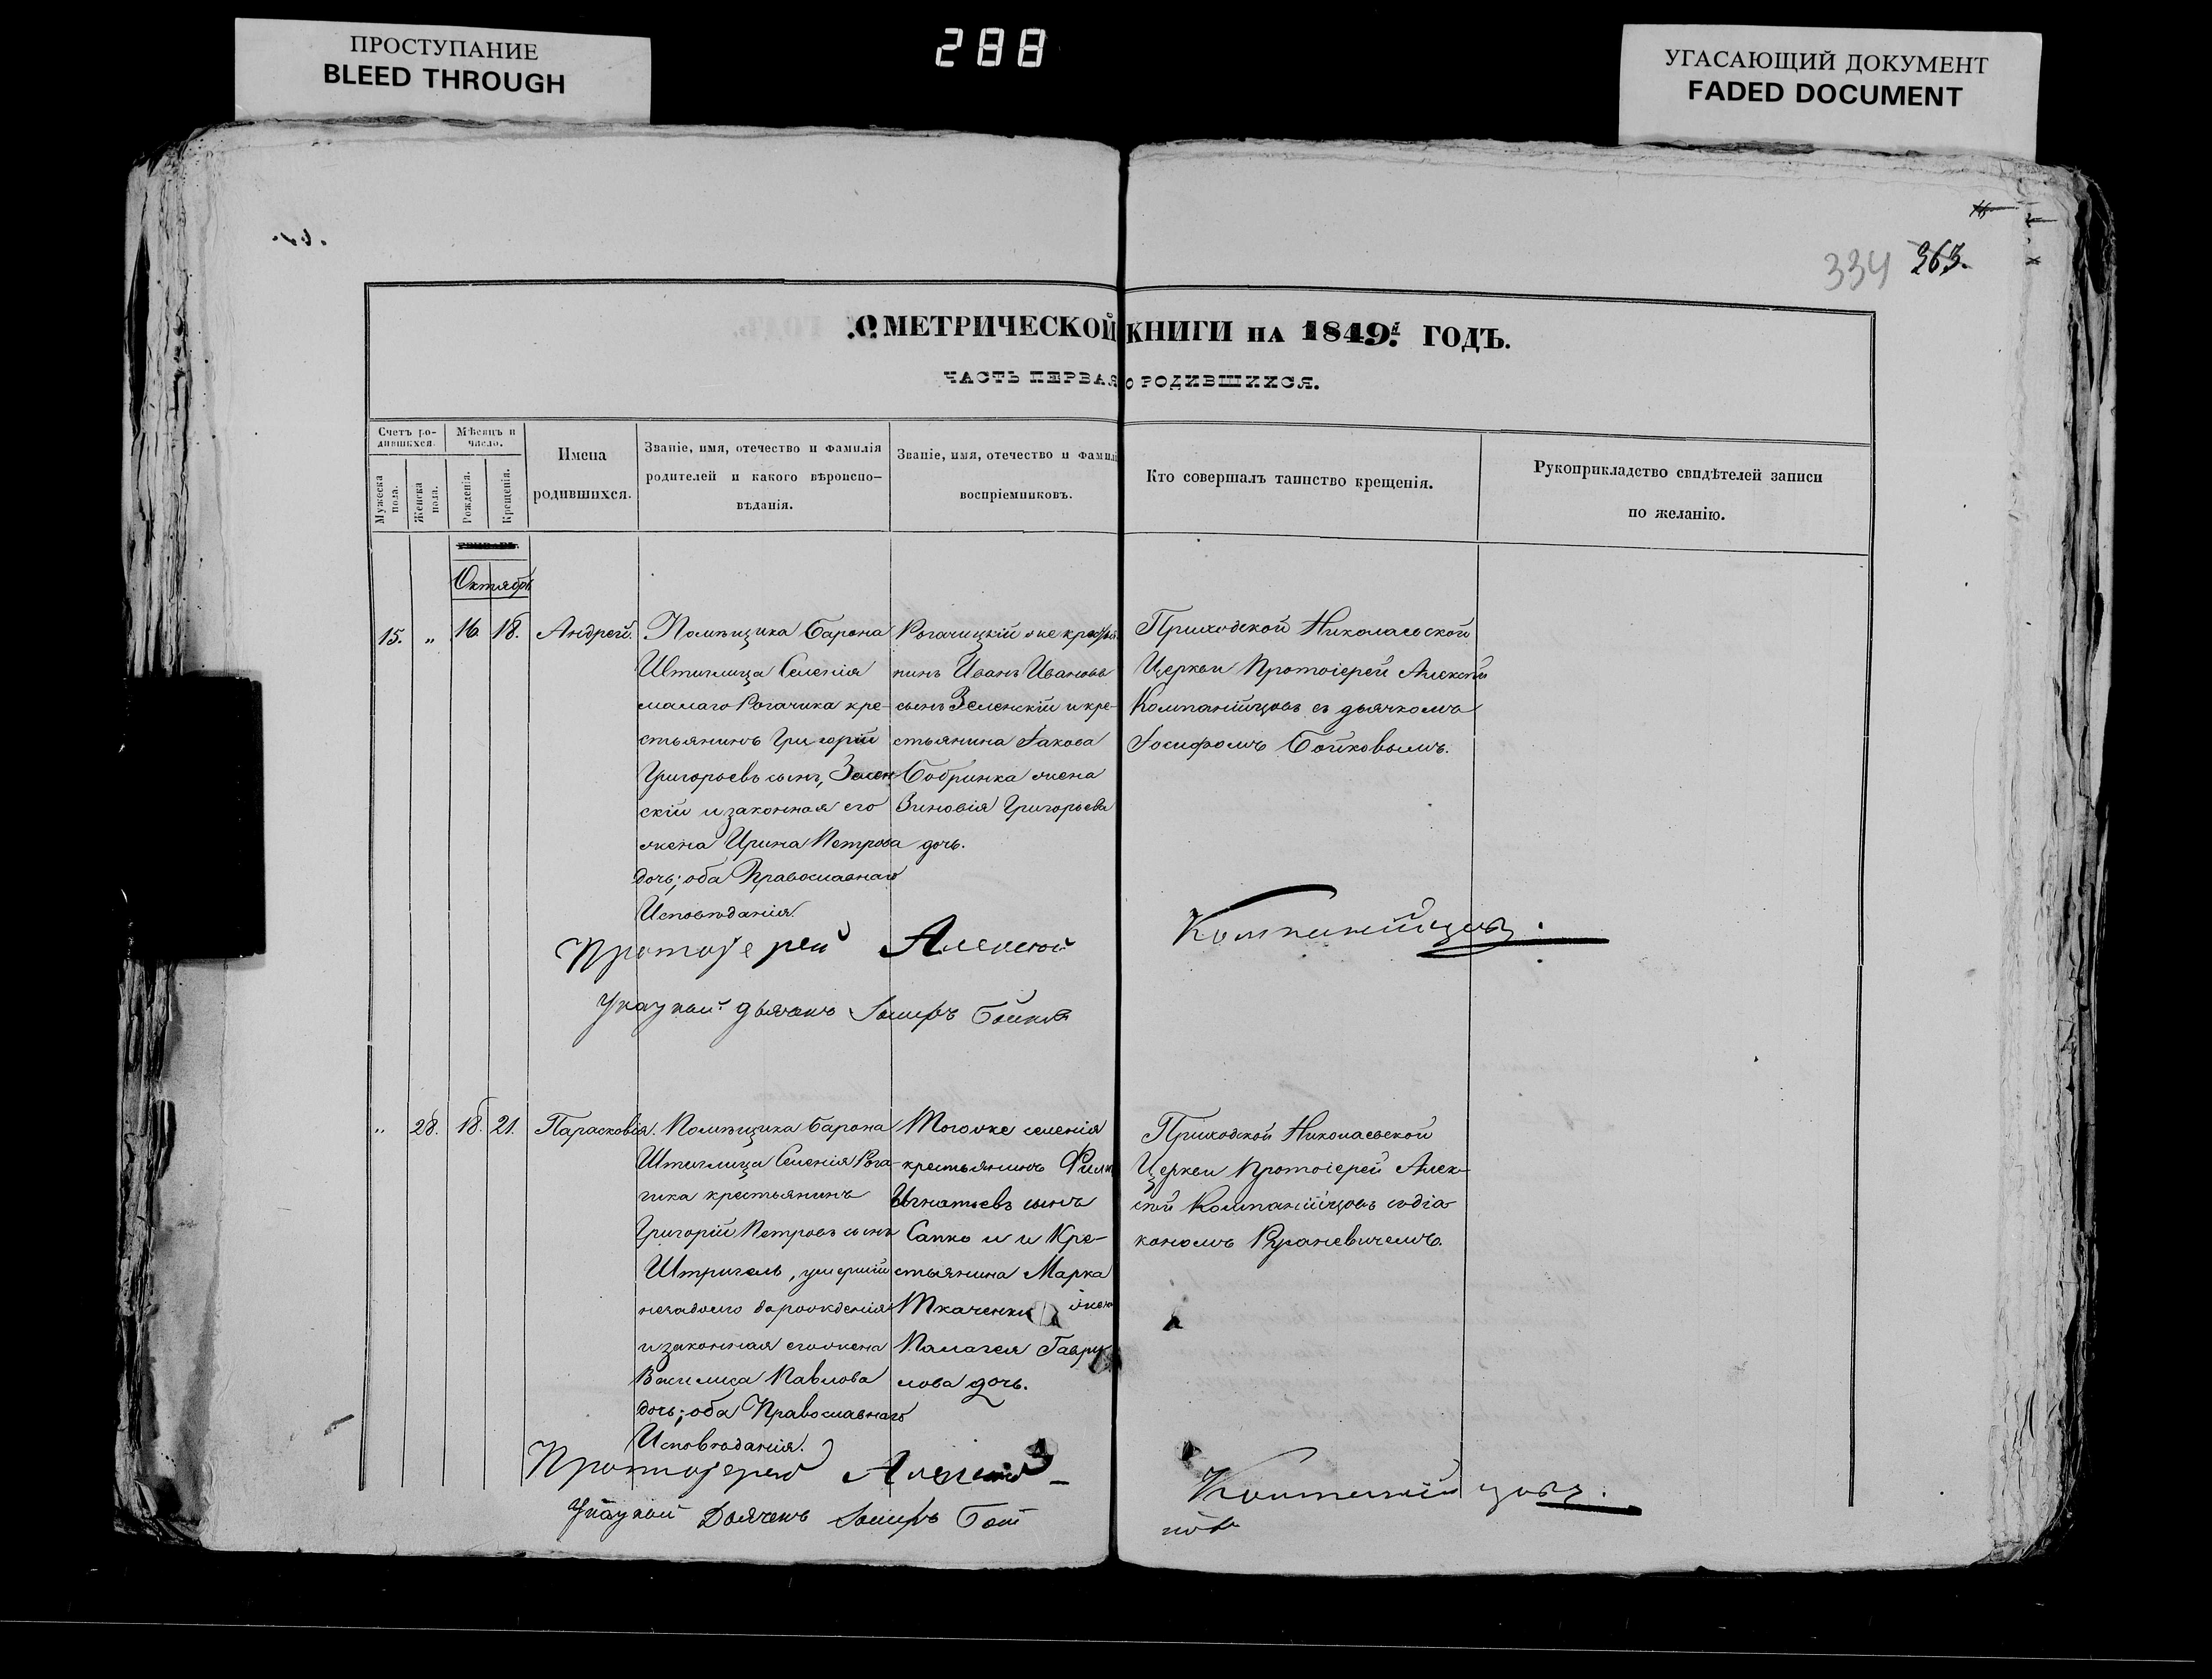 ПРОСТУПАНИЕ
BLEED THROUGH
288
УГАСАЮЩИЙ ДОКУМЕНТ
FADED DOCUMENT
334 363.
МЕТРИЧЕСКОЙ КНИГИ НА 1849й ГОДЪ.
ЧАСТЬ ПЕРВАЯ О РОДИВШИХСЯ.
Счетъ ро-
дившихся.
Мужеска пола.
Женска пола.
Мѣсяцъ и
число.
Рожденія.
Крещенія.
Имена
родившихся.
Званіе, имя, отечество и фамилія
родителей и какого вѣроиспо-
вѣданія.
Званіе, имя, отечество и фамилі
воспріемниковъ.
Кто совершалъ таинство крещенія.
Рукоприкладство свидѣтелей записи
по желанію.
Октябрь
15. „ 16. 18. Андрей.
Помѣщика Барона
Штиглица Селенія
малаго Рогачика кре-
стьянинъ Григорій
Григорьевъ сынъ, Зелен
скій и законная его
жена Ирина Петрова
дочь; оба Православнаго
Исповѣданія.
Рогачицкій же крестья
нинъ Иванъ Ивановъ
сынъ Зеленскій и кре-
стьянина Іакова
Бобринка жена
Зиновія Григорьева
дочь.
Приходской Николаевской
Церкви Протоіерей Алексѣй
Компанійцовъ съ дьячкомъ
Іосифомъ Бойковымъ.
Протоіерей Алексей Компанийцовъ.
Указной дьячекъ Іосифъ Бойковъ
„ 28. 18. 21. Парасковія.
Помѣщика Барона
Штиглица Селенія Рога-
чика крестьянинъ
Григорій Петровъ сынъ
Штригель, умершій
незадолго до рожденія
и законная его жена
Василиса Павлова
дочь; оба Православнаго
Исповѣданія.
Тогоже селенія
крестьянинъ
Игнатьевъ сынъ
Сапко и и Кре-
стьянина Марка
Ткаченки жена
Палагея Гаври
лова дочь.
Приходской Николаевской
Церкви Протоіерей Алек-
сѣй Компанійцовъ съ діа-
кономъ
Протоіерей Алексей Компанийцовъ.
Указной Дьячекъ Іосифъ Бой
ковъ